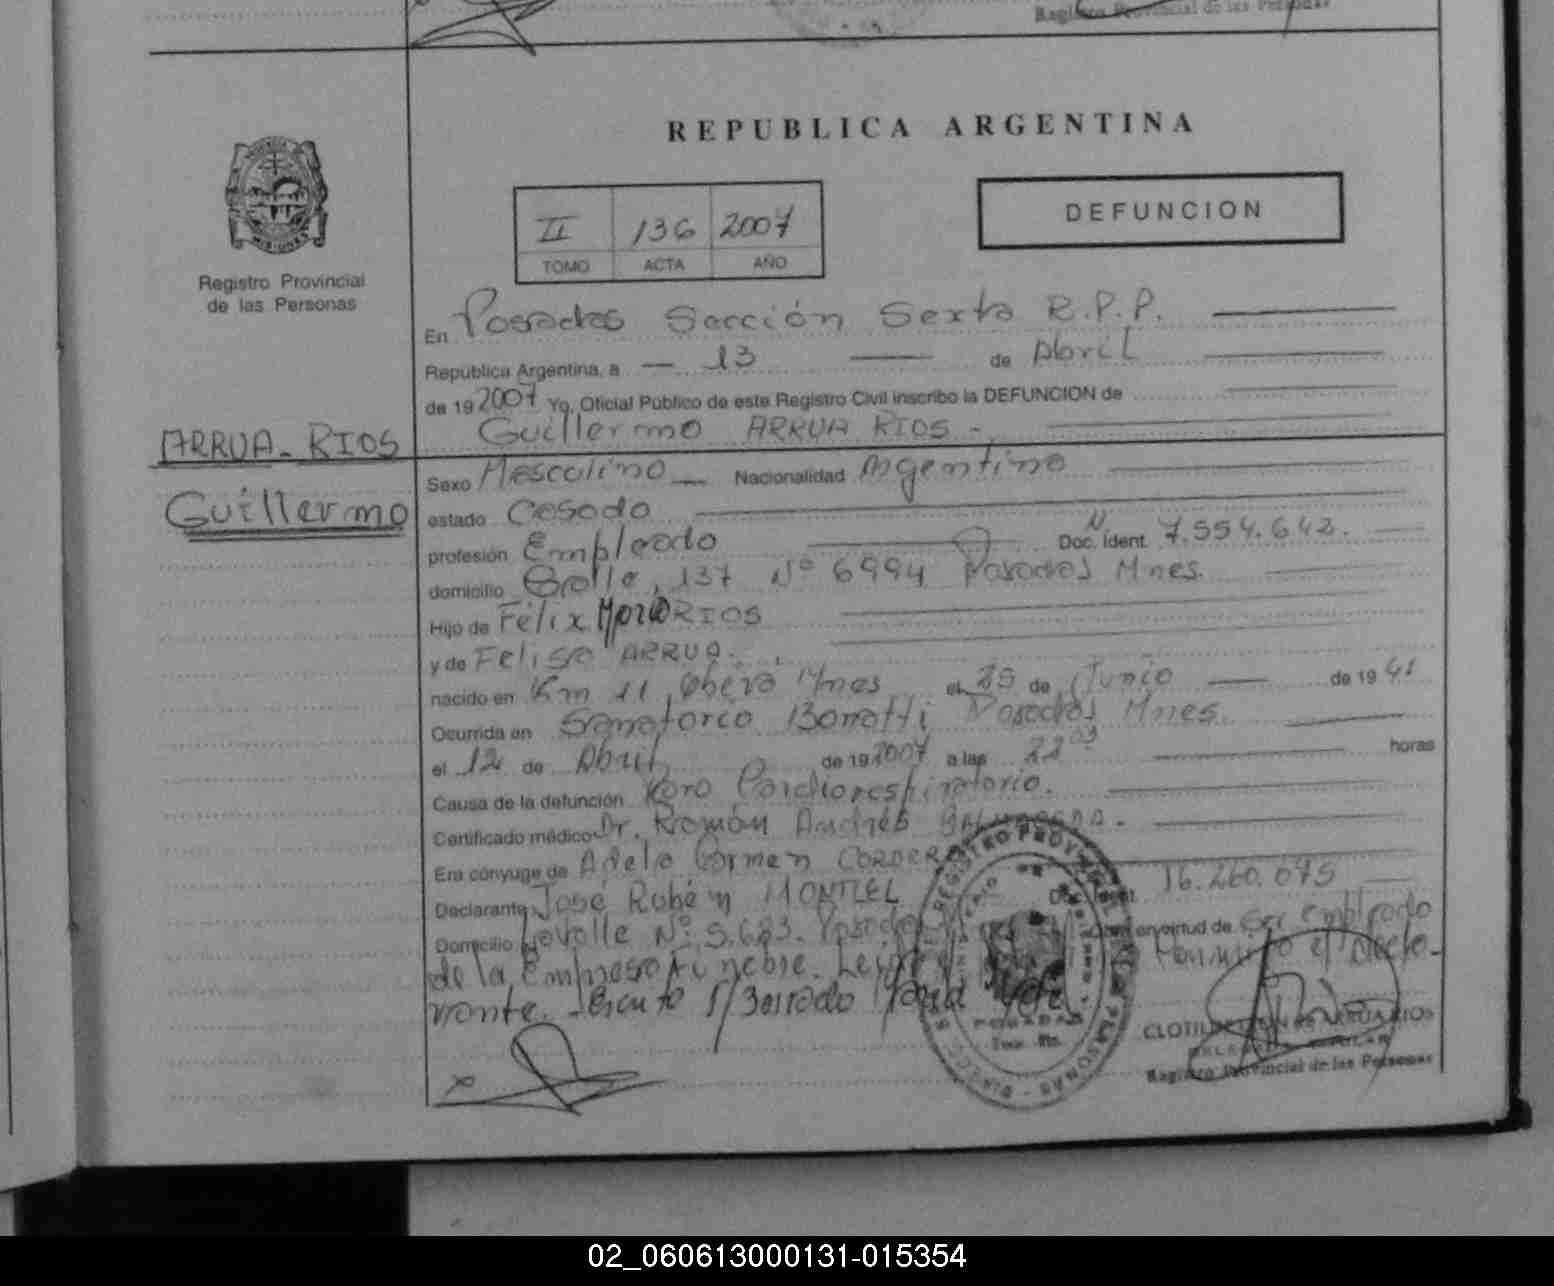 Registro Provincial de las Personas
REPUBLICA ARGENTINA
II 136 2007
TOMO ACTA AÑO
DEFUNCION
Registro Provincial
de las Personas
ARRUA-RIOS
Guillermo
En Posadas Sección Sexta R.P.P.
República Argentina, a 13 de Abril
de 19 2007 Yo, Oficial Público de este Registro Civil inscribo la DEFUNCION de
Guillermo ARRUA RIOS -
Sexo Masculino Nacionalidad Argentino
estado Casado
profesión Empleado Doc. Ident. 7.554.642.
domicilio Calle 137 Nº 6994 Posadas Mnes.
Hijo de Félix Mario RIOS
y de Felisa ARRUA.
nacido en Km 11, Oberá Mnes el 25 de Junio de 19 41
Ocurrida en Sanatorio Boratti Posadas Mnes.
el 12 de Abril de 19 2007 a las 22 03 horas
Causa de la defunción Paro Cardiorespiratorio.
Certificado médico Dr. Román Andrés
Era cónyuge de Adela Carmen CORDERO
Declarante José Rubén MONTIEL Doc. Ident. 16.260.075
Domicilio Lavalle Nº 5.683. Posadas en virtud de Ser empleado
de la Empresa Fúnebre. el decla-
rante. -
REGISTRO PROVINCIAL DE LAS PERSONAS
POSADAS
CLOTILDE ARRUA RIOS
Registro Provincial de las Personas
02_060613000131-015354